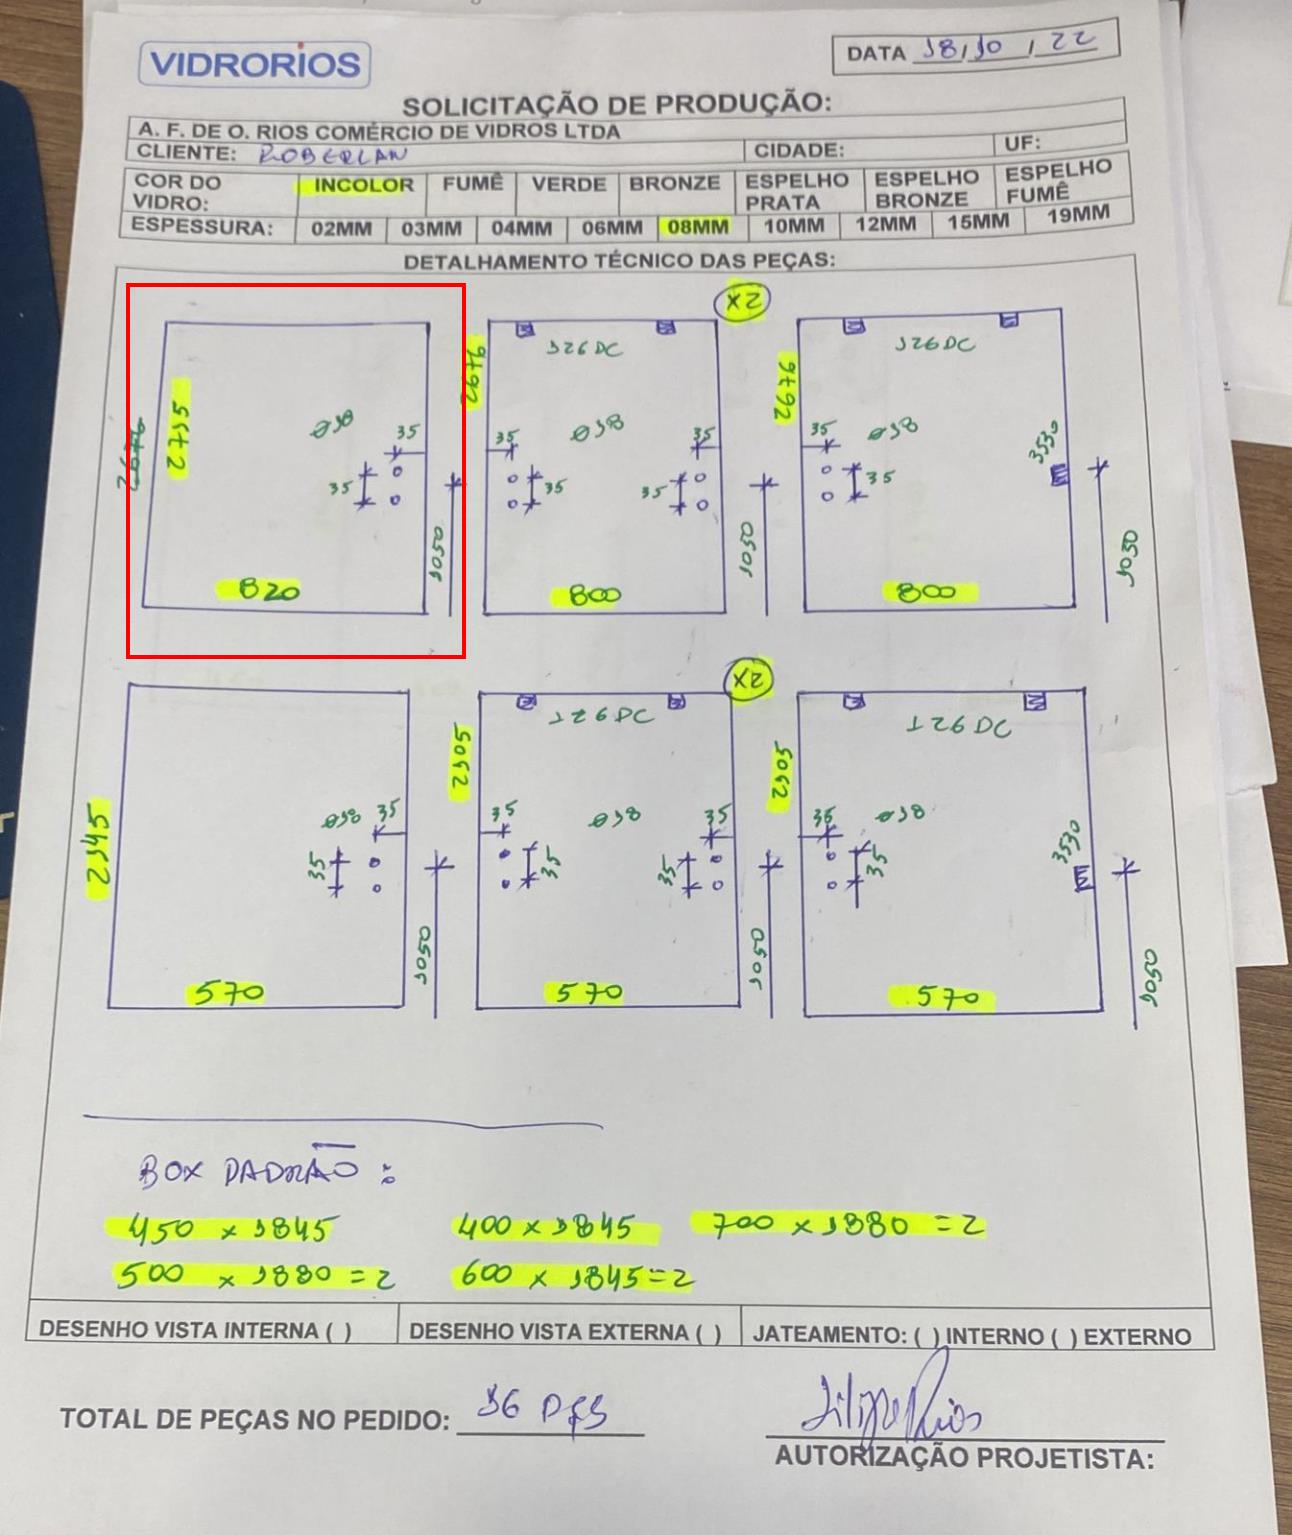 VIDRORIOS
DATA 18/10/22
SOLICITAÇÃO DE PRODUÇÃO:
A. F. DE O. RIOS COMÉRCIO DE VIDROS LTDA
CLIENTE: ROBERLAN CIDADE: UF:
COR DO VIDRO: INCOLOR FUMÊ VERDE BRONZE ESPELHO PRATA ESPELHO BRONZE ESPELHO FUMÊ
ESPESSURA: 02MM 03MM 04MM 06MM 08MM 10MM 12MM 15MM 19MM
DETALHAMENTO TÉCNICO DAS PEÇAS:
2676
Ø18
35
35
1050
820
126 DC
X2
35
Ø18
35
35
35
1050
800
126 DC
35
Ø18
35
3530
1050
800
2145
Ø18
35
35
1050
570
126 DC
X2
35
Ø18
35
35
35
1050
570
126 DC
35
Ø18
35
3530
1050
570
BOX PADRÃO:
450 x 1845 400 x 1845 700 x 1880 = 2
500 x 1880 = 2 600 x 1845 = 2
DESENHO VISTA INTERNA ( ) DESENHO VISTA EXTERNA ( ) JATEAMENTO: ( ) INTERNO ( ) EXTERNO
TOTAL DE PEÇAS NO PEDIDO: 16 PÇS
Filipe Rios
AUTORIZAÇÃO PROJETISTA: